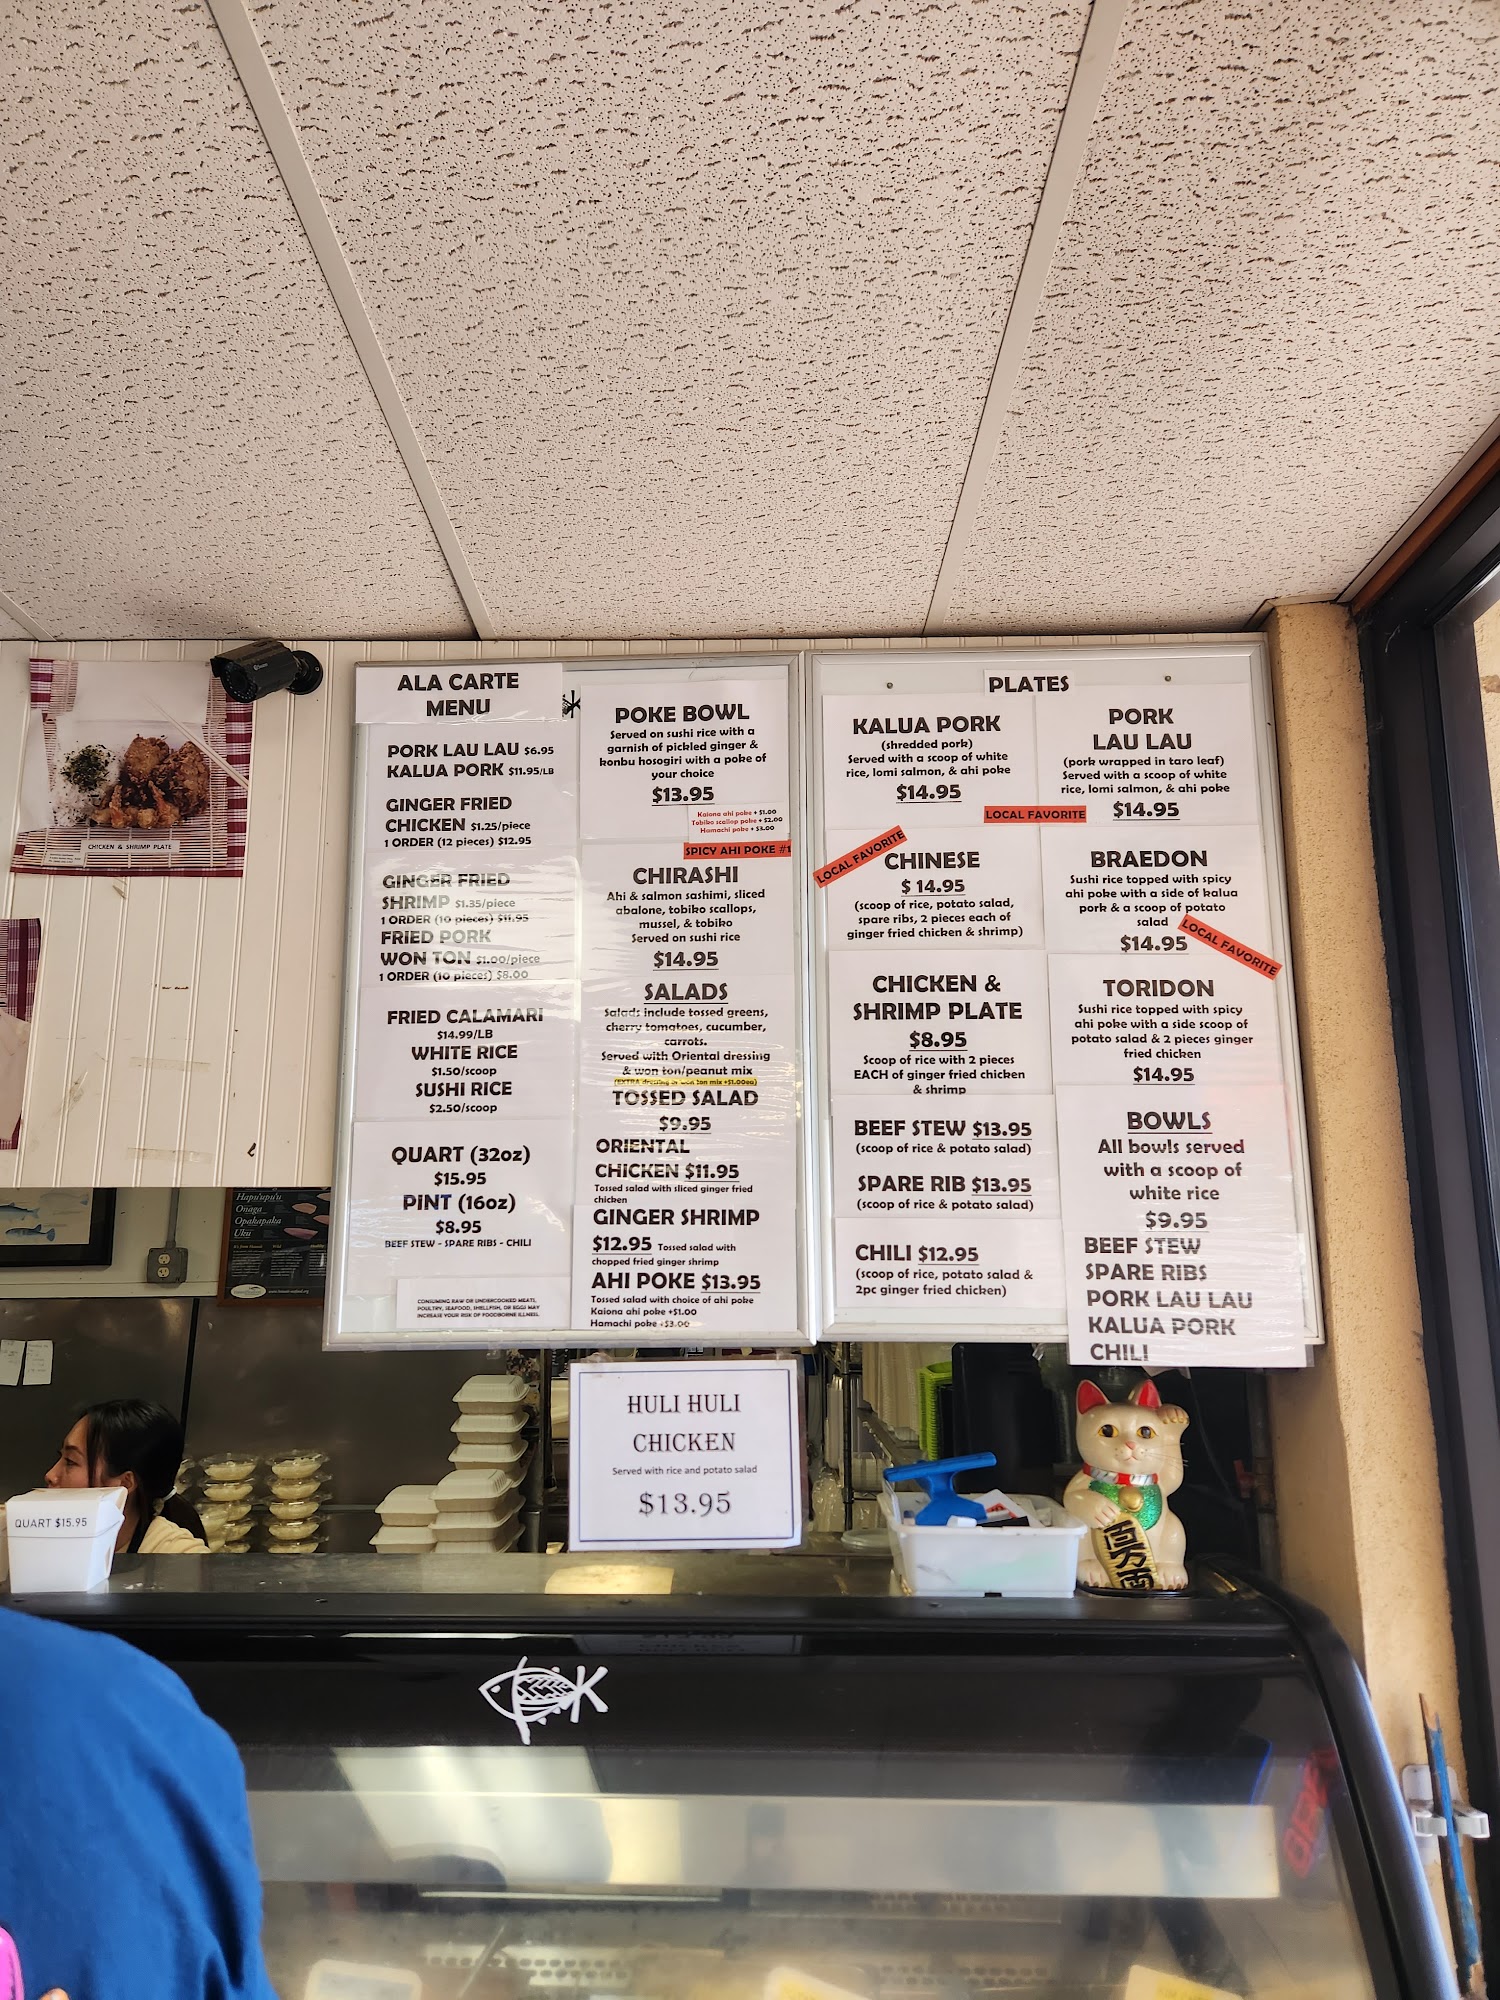 CHICKEN & SHRIMP PLATE
ALA CARTE
MENU
PORK LAU LAU $6.95
KALUA PORK $11.95/LB
GINGER FRIED
CHICKEN $1.25/piece
1 ORDER (12 pieces) $12.95
GINGER FRIED
SHRIMP $1.35/piece
1 ORDER (10 pieces) $11.95
FRIED PORK
WON TON $1.00/piece
1 ORDER (10 pieces) $8.00
FRIED CALAMARI
$14.99/LB
WHITE RICE
$1.50/scoop
SUSHI RICE
$2.50/scoop
QUART (32oz)
$15.95
PINT (16oz)
$8.95
BEEF STEW - SPARE RIBS - CHILI
CONSUMING RAW OR UNDERCOOKED MEATS,
POULTRY, SEAFOOD, SHELLFISH, OR EGGS MAY
INCREASE YOUR RISK OF FOODBORNE ILLNESS.
POKE BOWL
Served on sushi rice with a
garnish of pickled ginger &
konbu hosogiri with a poke of
your choice
$13.95
Kaiona ahi poke + $1.00
Tobiko scallop poke + $2.00
Hamachi poke + $3.00
SPICY AHI POKE #1
CHIRASHI
Ahi & salmon sashimi, sliced
abalone, tobiko scallops,
mussel, & tobiko
Served on sushi rice
$14.95
SALADS
Salads include tossed greens,
cherry tomatoes, cucumber,
carrots.
Served with Oriental dressing
& won ton/peanut mix
(EXTRA dressing or won ton mix +$1.00ea)
TOSSED SALAD
$9.95
ORIENTAL
CHICKEN $11.95
Tossed salad with sliced ginger fried
chicken
GINGER SHRIMP
$12.95 Tossed salad with
chopped fried ginger shrimp
AHI POKE $13.95
Tossed salad with choice of ahi poke
Kaiona ahi poke +$1.00
Hamachi poke +$3.00
PLATES
KALUA PORK
(shredded pork)
Served with a scoop of white
rice, lomi salmon, & ahi poke
$14.95
LOCAL FAVORITE
CHINESE
$ 14.95
(scoop of rice, potato salad,
spare ribs, 2 pieces each of
ginger fried chicken & shrimp)
CHICKEN &
SHRIMP PLATE
$8.95
Scoop of rice with 2 pieces
EACH of ginger fried chicken
& shrimp
BEEF STEW $13.95
(scoop of rice & potato salad)
SPARE RIB $13.95
(scoop of rice & potato salad)
CHILI $12.95
(scoop of rice, potato salad &
2pc ginger fried chicken)
PORK
LAU LAU
(pork wrapped in taro leaf)
Served with a scoop of white
rice, lomi salmon, & ahi poke
$14.95
LOCAL FAVORITE
BRAEDON
Sushi rice topped with spicy
ahi poke with a side of kalua
pork & a scoop of potato
salad
$14.95
LOCAL FAVORITE
TORIDON
Sushi rice topped with spicy
ahi poke with a side scoop of
potato salad & 2 pieces ginger
fried chicken
$14.95
BOWLS
All bowls served
with a scoop of
white rice
$9.95
BEEF STEW
SPARE RIBS
PORK LAU LAU
KALUA PORK
CHILI
Hapu'upu'u
Onaga
Opakapaka
Uku
HULI HULI
CHICKEN
Served with rice and potato salad
$13.95
QUART $15.95
K